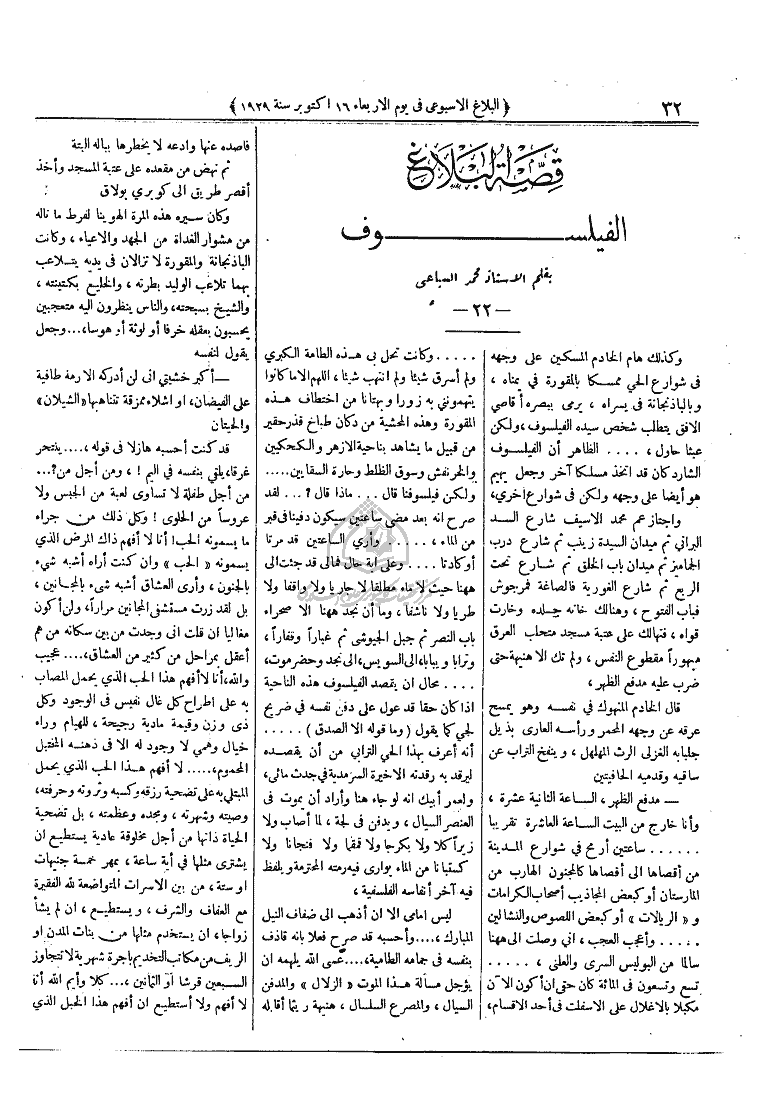 ٣٢
﴿ البلاغ الاسبوعى فى يوم الاربعاء ١٦ اكتوبر سنة ١٩٢٩ ﴾
قصة البلاغ
الفيلسوف
بقلم الاستاذ محمد السباعى
— ٢٢ —
وكذلك هام الخادم المسكين على وجهه
فى شوارع الحي ممسكا بالمقورة في يمناه ،
وبالباذنجانة فى يسراه ، يرمى ببصره أقاصي
الافق يتطلب شخص سيده الفيلسوف، ولكن
عبثا حاول ، .... الظاهر أن الفيلسوف
الشارد كان قد اتخذ مسلكا آخر وجعل يهيم
هو أيضا على وجهه ولكن فى شوارع اخرى،
واجتاز عم محمد الاسيف شارع السد
البراني ثم ميدان السيدة زينب ثم شارع درب
الجماميز ثم ميدان باب الخلق ثم شارع تحت
الربع ثم شارع الغورية فالصاغة فمرجوش
فباب الفتوح ، وهنالك خانه جلده وخارت
قواه ، فتهالك على عتبة مسجد متحلب العرق
مبهوراً مقطوع النفس ، ولم تك الا هنيهة حتى
ضرب عليه مدفع الظهر ،
قال الخادم المنهوك في نفسه وهو يمسح
عرقه عن وجهه المحمر ورأسه العارى بذيل
جلبابه الغزلى الرث المهلهل ، وينفخ التراب عن
ساقيه وقدميه الحافيتين
— مدفع الظهر ، الساعة الثانية عشرة ،
وأنا خارج من البيت الساعة العاشرة تقريبا
...... ساعتين أرمح في شوارع المدينة
من أقصاها الى أقصاها كالمجنون الهارب من
المارستان أو كبعض المجاذيب أصحاب الكرامات
و « الريالات » أو كبعض اللصوص والنشالين
..... وأعجب العجب ، اني وصلت الى ههنا
سالما من البوليس السرى والعلنى ، .....
تسع وتسعون فى المائة كان حتى ان أكون الآن
مكبلا بالاغلال على الاسفلت فى أحد الاقسام ،
..... وكانت تحل بى هذه الطامة الكبري
ولم أسرق شيئا ولم انتهب شيئا ، اللهم الا ما كانوا
يتهمونني به زورا وبهتانا من اختطاف هذه
المقورة وهذه المحشية من دكان طباخ قذر حقير
من قبيل ما يشاهد بناحية الازهر والكحكيين
والخرنفش وسوق الظلط وحارة السقايين .....
ولكن فيلسوفنا قال ... ماذا قال ؟ ... لقد
صرح انه بعد مضى ساعتين سيكون دفينا فى قبر
من الماء ، ..... وأرى الساعتين قد مرتا
أو كادتا .... وعلى اية حال فمالى قد جئت الى
ههنا حيث لا ماء مطلقا لا جاريا ولا واقفا ولا
طريا ولا ناشفا ، وما أن نجد ههنا الا صحراء
باب النصر ثم جبل الجيوشى ثم غباراً وقفاراً ،
وترابا ويبابا، الى السويس، الى نجد وحضرموت،
.... محال ان يقصد الفيلسوف هذه الناحية
اذا كان حقا قد عول على دفن نفسه في ضريح
لجي كما يقول ( وما قوله الا الصدق ) .....
أنه أعرف بهذا الحي الترابي من أن يقصده
ليرقد به رقدته الاخيرة السرمدية في جدث مائى،
ولعمر أبيك انه لو جاء هنا وأراد أن يموت فى
العنصر السيال ، ويدفن فى لجة ، لما أصاب ولا
زيراً كلا ولا بكرجا ولا قمقما ولا فنجانا ولا
كستبانا من الماء يوارى فيه رمته المحترمة ويلفظ
فيه آخر أنفاسه الفلسفية ،
ليس امامى الا ان أذهب الى ضفاف النيل
المبارك ،.... وأحسبه قد صرح فعلا بانه قاذف
بنفسه فى جمامه الطامية،.... عسى الله يلهمه ان
يؤجل مسألة هذا الموت « الزلال » والمدفن
السيال ، والمصرع السلسال ، هنيهة ريثما أقابله
فاصده عنها وادعه لا يخطرها بباله البتة
ثم نهض من مقعده على عتبة المسجد وأخذ
أقصر طريق الى كوبري بولاق
وكان سيره هذه المرة الهوينا لفرط ما ناله
من مشوار الغداة من الجهد والاعياء ، وكانت
الباذنجانة والمقورة لا تزالان فى يديه يتلاعب
بهما تلاعب الوليد بطرته ، والخليع بكتينته ،
والشيخ بسبحته، والناس ينظرون اليه متعجبين
يحسبون بعقله خرفا أو لوثة أو هوسا،... وجعل
يقول لنفسه
— أكبر خشيتى انى لن أدركه الا رمة طافية
على الفيضان، او اشلاء ممزقة تتناهبها «الشيلان»
والحيتان
قد كنت أحسبه هازلا فى قوله ،.... ينتحر
غرقا، يلقي بنفسه في اليم ! ، ومن أجل من؟...
من أجل طفلة لا تساوى لعبة من الجبس ولا
عروساً من الحلوى ! وكل ذلك من جراء
ما يسمونه الحب! أنا لا أفهم ذاك المرض الذي
يسمونه « الحب » وان كنت أراه أشبه شىء
بالجنون ، وأرى العشاق أشبه شىء بالمجانين ،
بل لقد زرت مستشفى المجانين مراراً، ولن أكون
مغاليا ان قلت انى وجدت من بين سكانه من هم
أعقل بمراحل من كثير من العشاق،.... عجيب
والله، أنا لا أفهم هذا الحب الذي يحمل المصاب
به على اطراح كل غال نفيس فى الوجود وكل
ذى وزن وقيمة مادية رجيحة ، للهيام وراء
خيال وهمي لا وجود له الا فى ذهنه المختبل
المحموم،.... لا أفهم هذا الحب الذي يحمل
المبتلي به على تضحية رزقه وكسبه وثروته وحرفته،
وصيته وشهرته ، ومجده وعظمته ، بل تضحية
الحياة ذاتها من أجل مخلوقة عادية يستطيع ان
يشترى مثلها في أية ساعة ، بمهر خمسة جنيهات
او ستة ، من بين الاسرات المتواضعة لله الفقيرة
مع العفاف والشرف ، ويستطيع ، ان لم يشأ
زواجا، ان يستخدم مثلها من بنات المدن او
الريف من مكاتب التخديم باجرة شهرية لا تتجاوز
السبعين قرشا أو الثمانين ،... كلا وأيم الله أنا
لا أفهم ولا أستطيع ان افهم هذا الخبل الذي